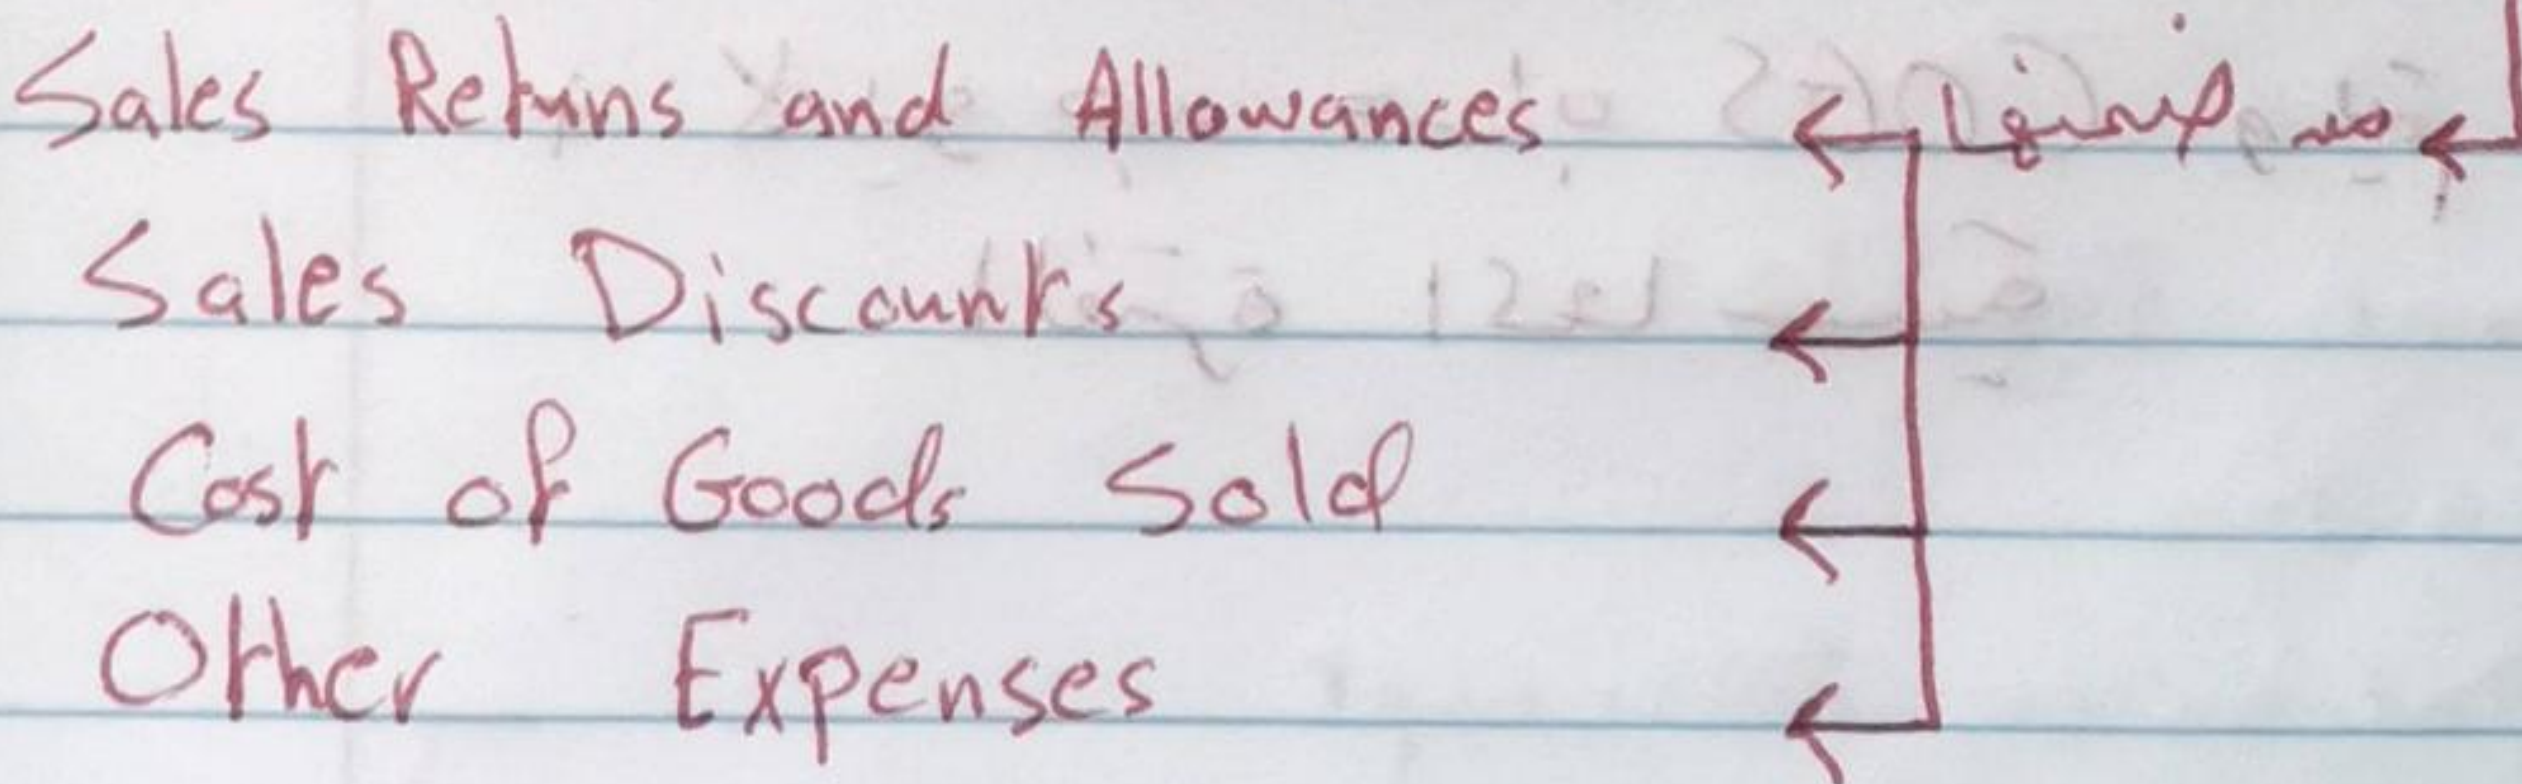 Sales Returns and Allowances
Sales Discounts
Cost of Goods Sold
Other Expenses